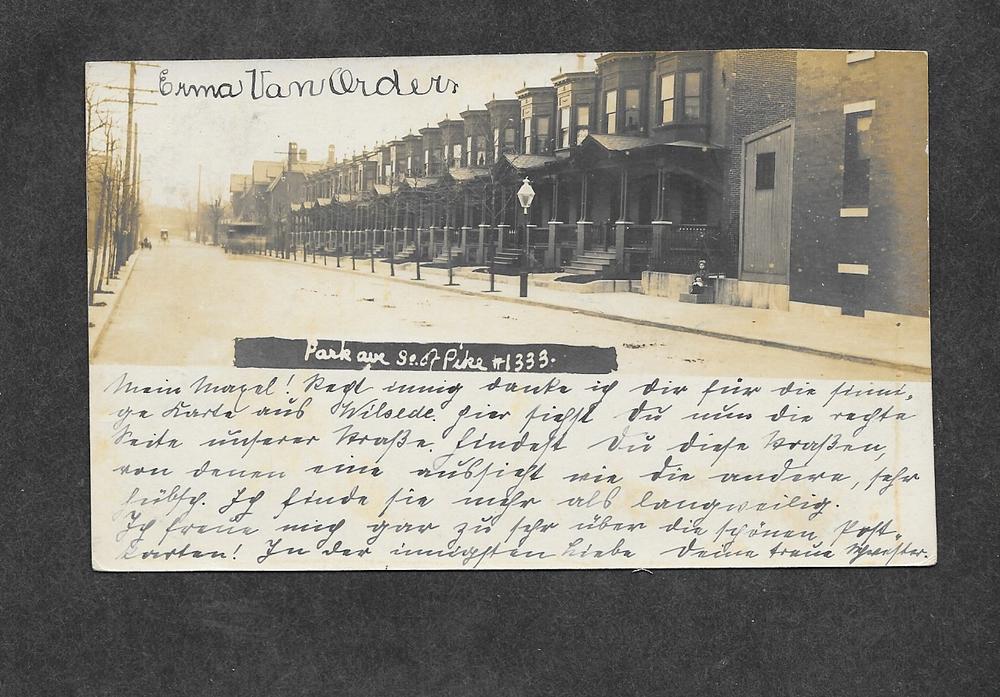 Erma Van Orders
Park ave So. of Pike #1333.
Mein Maxel! Recht innig danke ich Dir für die sinni-
ge Karte aus Wilsede. Hier siehst Du nun die rechte
Seite unserer Straße. Findest Du diese Straßen,
von denen eine aussieht wie die andere, sehr
hübsch. Ich finde sie mehr als langweilig.
Ich freue mich gar zu sehr über die schönen Post-
karten! In der innigsten Liebe Deine treue Schwester.